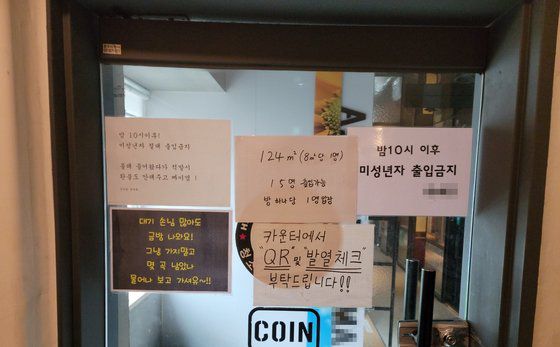 밤 10시이후!
미성년자 절대 출입금지
몰래 들어왔다가 적발시
환불도 안해주고 바이염!
124m² (8m²당 1명)
15명 출입가능
방 하나당 1명 입장
밤10시 이후
미성년자 출입금지
대기 손님 많아도
금방 나와요!
그냥 가지말고
몇 곡 남았나
물어나 보고 가셔유~!!
카운터에서
"QR" 및 "발열체크"
부탁드립니다!!
COIN